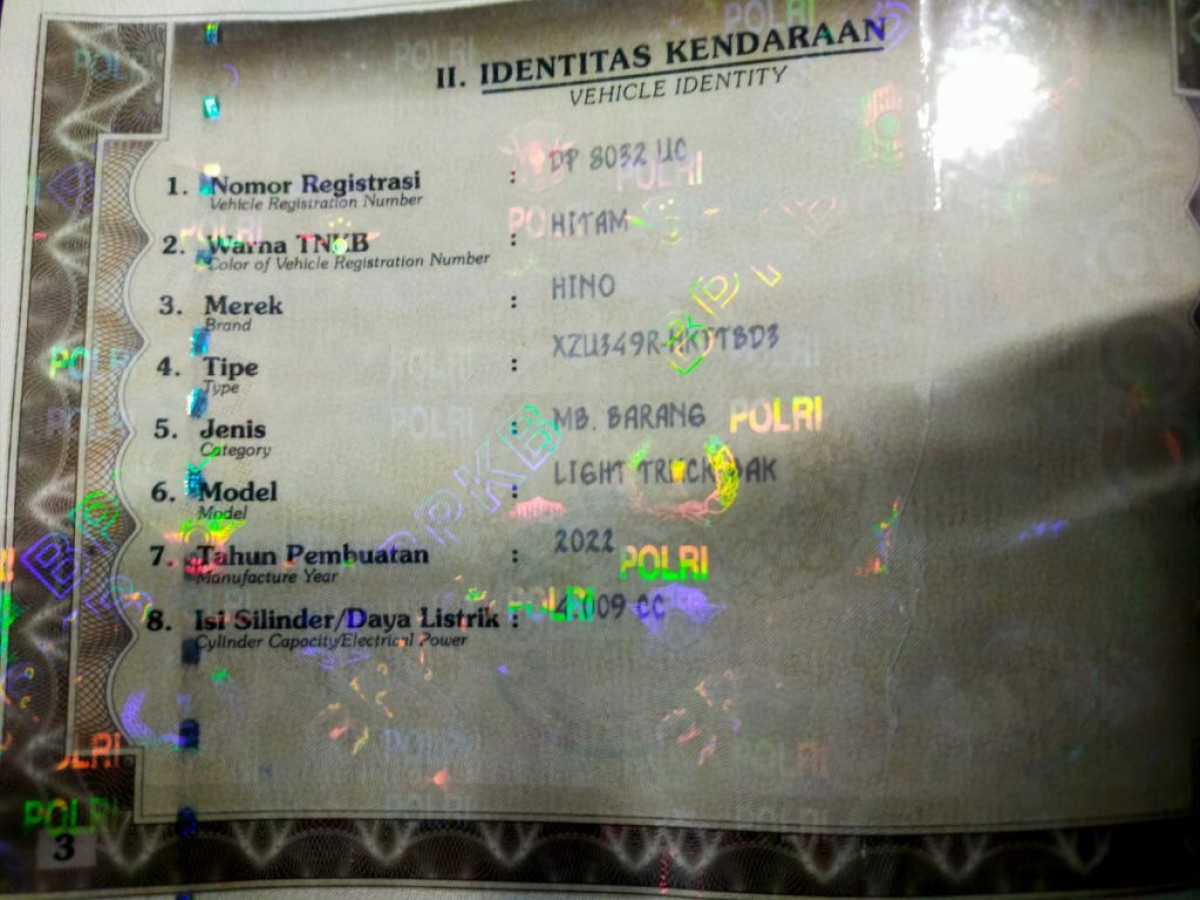 II. IDENTITAS KENDARAAN
VEHICLE IDENTITY
1. Nomor Registrasi : DP 8032 UC
Vehicle Registration Number
2. Warna TNKB : HITAM
Color of Vehicle Registration Number
3. Merek : HINO
Brand
4. Tipe : XZU349R-HKFTBD3
Type
5. Jenis : MB. BARANG
Category
6. Model : LIGHT TRUCK BAK
Model
7. Tahun Pembuatan : 2022
Manufacture Year
8. Isi Silinder/Daya Listrik : 4.009 CC
Cylinder Capacity/Electrical Power
POLRI
POLRI
POLRI
BPKB
POLRI
3